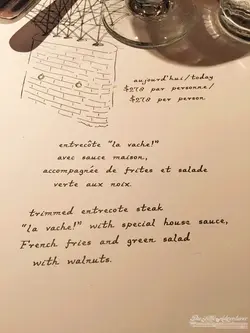 aujourd'hui/today
$270 par personne/
$270 per person.
entrecôte "la vache!"
avec sauce maison,
accompagnée de frites et salade
verte aux noix.
trimmed entrecote steak
"la vache!" with special house sauce,
French fries and green salad
with walnuts.